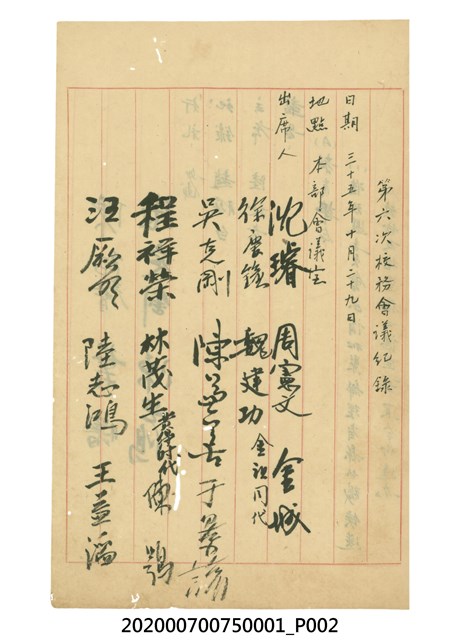 第六次校務會議紀錄
日期 三十五年十月二十九日
地點 本部會議室
出席人
沈璿 周憲文 金城
徐慶鐘 魏建功 金祖同代
吳克剛 陳 于景讓
程祥榮 林茂生 黃 時代 陳
汪厥明 陸志鴻 王益滔
202000700750001_P002